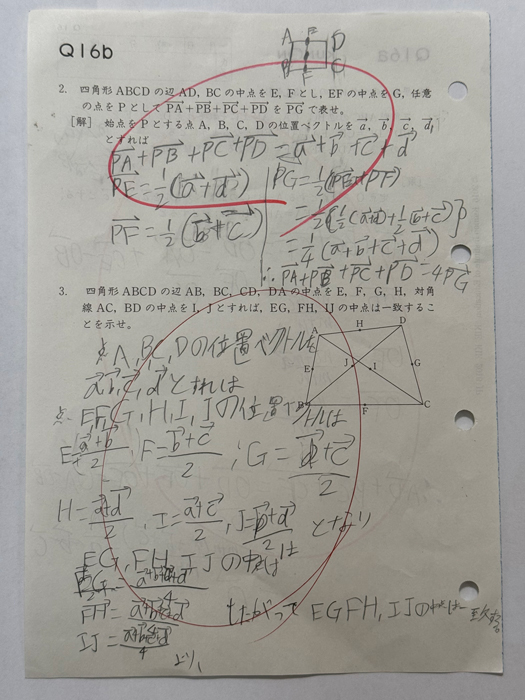 Q16b
A F D
B E C
2. 四角形ABCDの辺AD, BCの中点をE, Fとし, EFの中点をG, 任意
の点をPとして PA+PB+PC+PD を PG で表せ。
[解] 始点をPとする点A, B, C, Dの位置ベクトルを a, b, c, d,
とすれば
PA+PB+PC+PD=a+b+c+d
PE=1/2(a+d)
PF=1/2(b+c)
PG=1/2(PE+PF)
=1/2{1/2(a+d)+1/2(b+c)}
=1/4(a+b+c+d)
∴PA+PB+PC+PD=4PG
3. 四角形ABCDの辺AB, BC, CD, DAの中点をE, F, G, H, 対角
線AC, BDの中点をI, Jとすれば, EG, FH, IJの中点は一致するこ
とを示せ。
A H D
E J I G
B F C
A,B,C,Dの位置ベクトルを
a,b,c,dとすれば
E,F,G,H,I,Jの位置ベクトルは
E=a+b/2 F=b+c/2, G=d+c/2
H=a+d/2, I=a+c/2, J=b+d/2 となり
EG,FH,IJの中点は
EG=a+b+c+d/4
FH=a+b+c+d/4
IJ=a+b+c+d/4 より,
したがって EG FH,IJの中点は一致する。